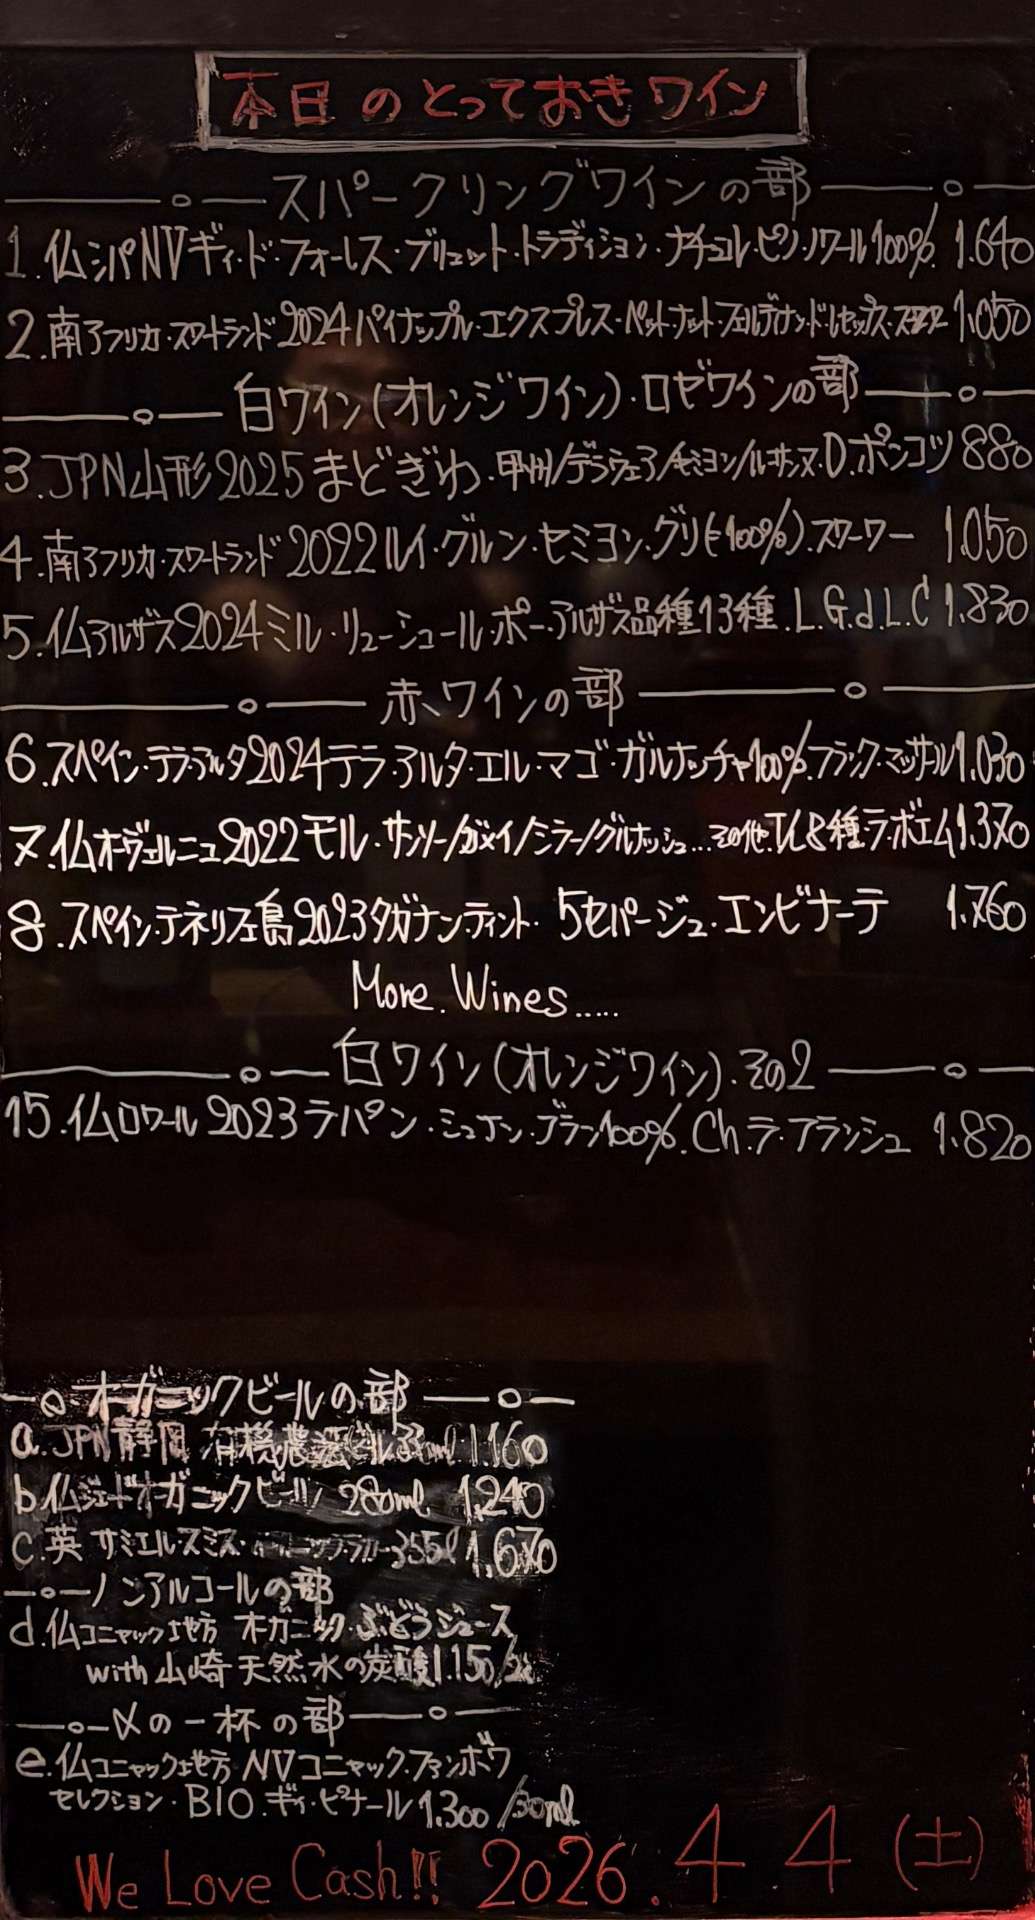 本日のとっておきワイン
スパークリングワインの部
1.仏シャパNVギィ・ド・フォーレス・ブリュット・トラディション・ナチュレ・ピノ・ノワール100% 1.640
2.南アフリカ・スワートランド2024パイナップル・エクスプレス・ペットナット・フェルディナンド・レセップス 1.050
白ワイン(オレンジワイン)・ロゼワインの部
3.JPN山形2025まどぎわ・甲州/デラウェア/セミヨン/ルーサンヌ・D.ポンコツ 880
4.南アフリカ・スワートランド2022ルイ・グルン・セミヨン・グリ(100%).スワーワー 1.050
5.仏アルザス2024ミル・リュー・シュール・ポー・アルザス品種13種.L.G.d.L.C 1.830
赤ワインの部
6.スペイン・テラ・アルタ2024テラ・アルタ・エル・マゴ・ガルナッチャ100%.フラック・マッサール 1.030
7.仏オーヴェルニュ2022モル・サンソー/ガメイ/シラー/グルナッシュ...その他.TL8種・ラ・ボエム 1.370
8.スペイン・テネリフェ島2023タガナン・ティント・5セパージュ・エンビナーテ 1.760
More.Wines.....
白ワイン(オレンジワイン).その2
15.仏ロワール2023ラパン・シュナン・ブラン100%.Ch.ラ・フランシュ 1.820
オーガニックビールの部
a.JPN静岡 有機農法ビール 1.160
b.仏ジェードオーガニックビール 280ml 1.240
c.英 サミエルスミス・オーガニックラガー355ml 1.670
ノンアルコールの部
d.仏コニャック地方 オーガニック・ぶどうジュース
with山崎天然水の炭酸 1.150
〆の一杯の部
e.仏コニャック地方 NVコニャック・ファンボワ
セレクション・BIO.ギィ・ピナール 1.300/30ml
We Love Cash!! 2026.4 4(土)